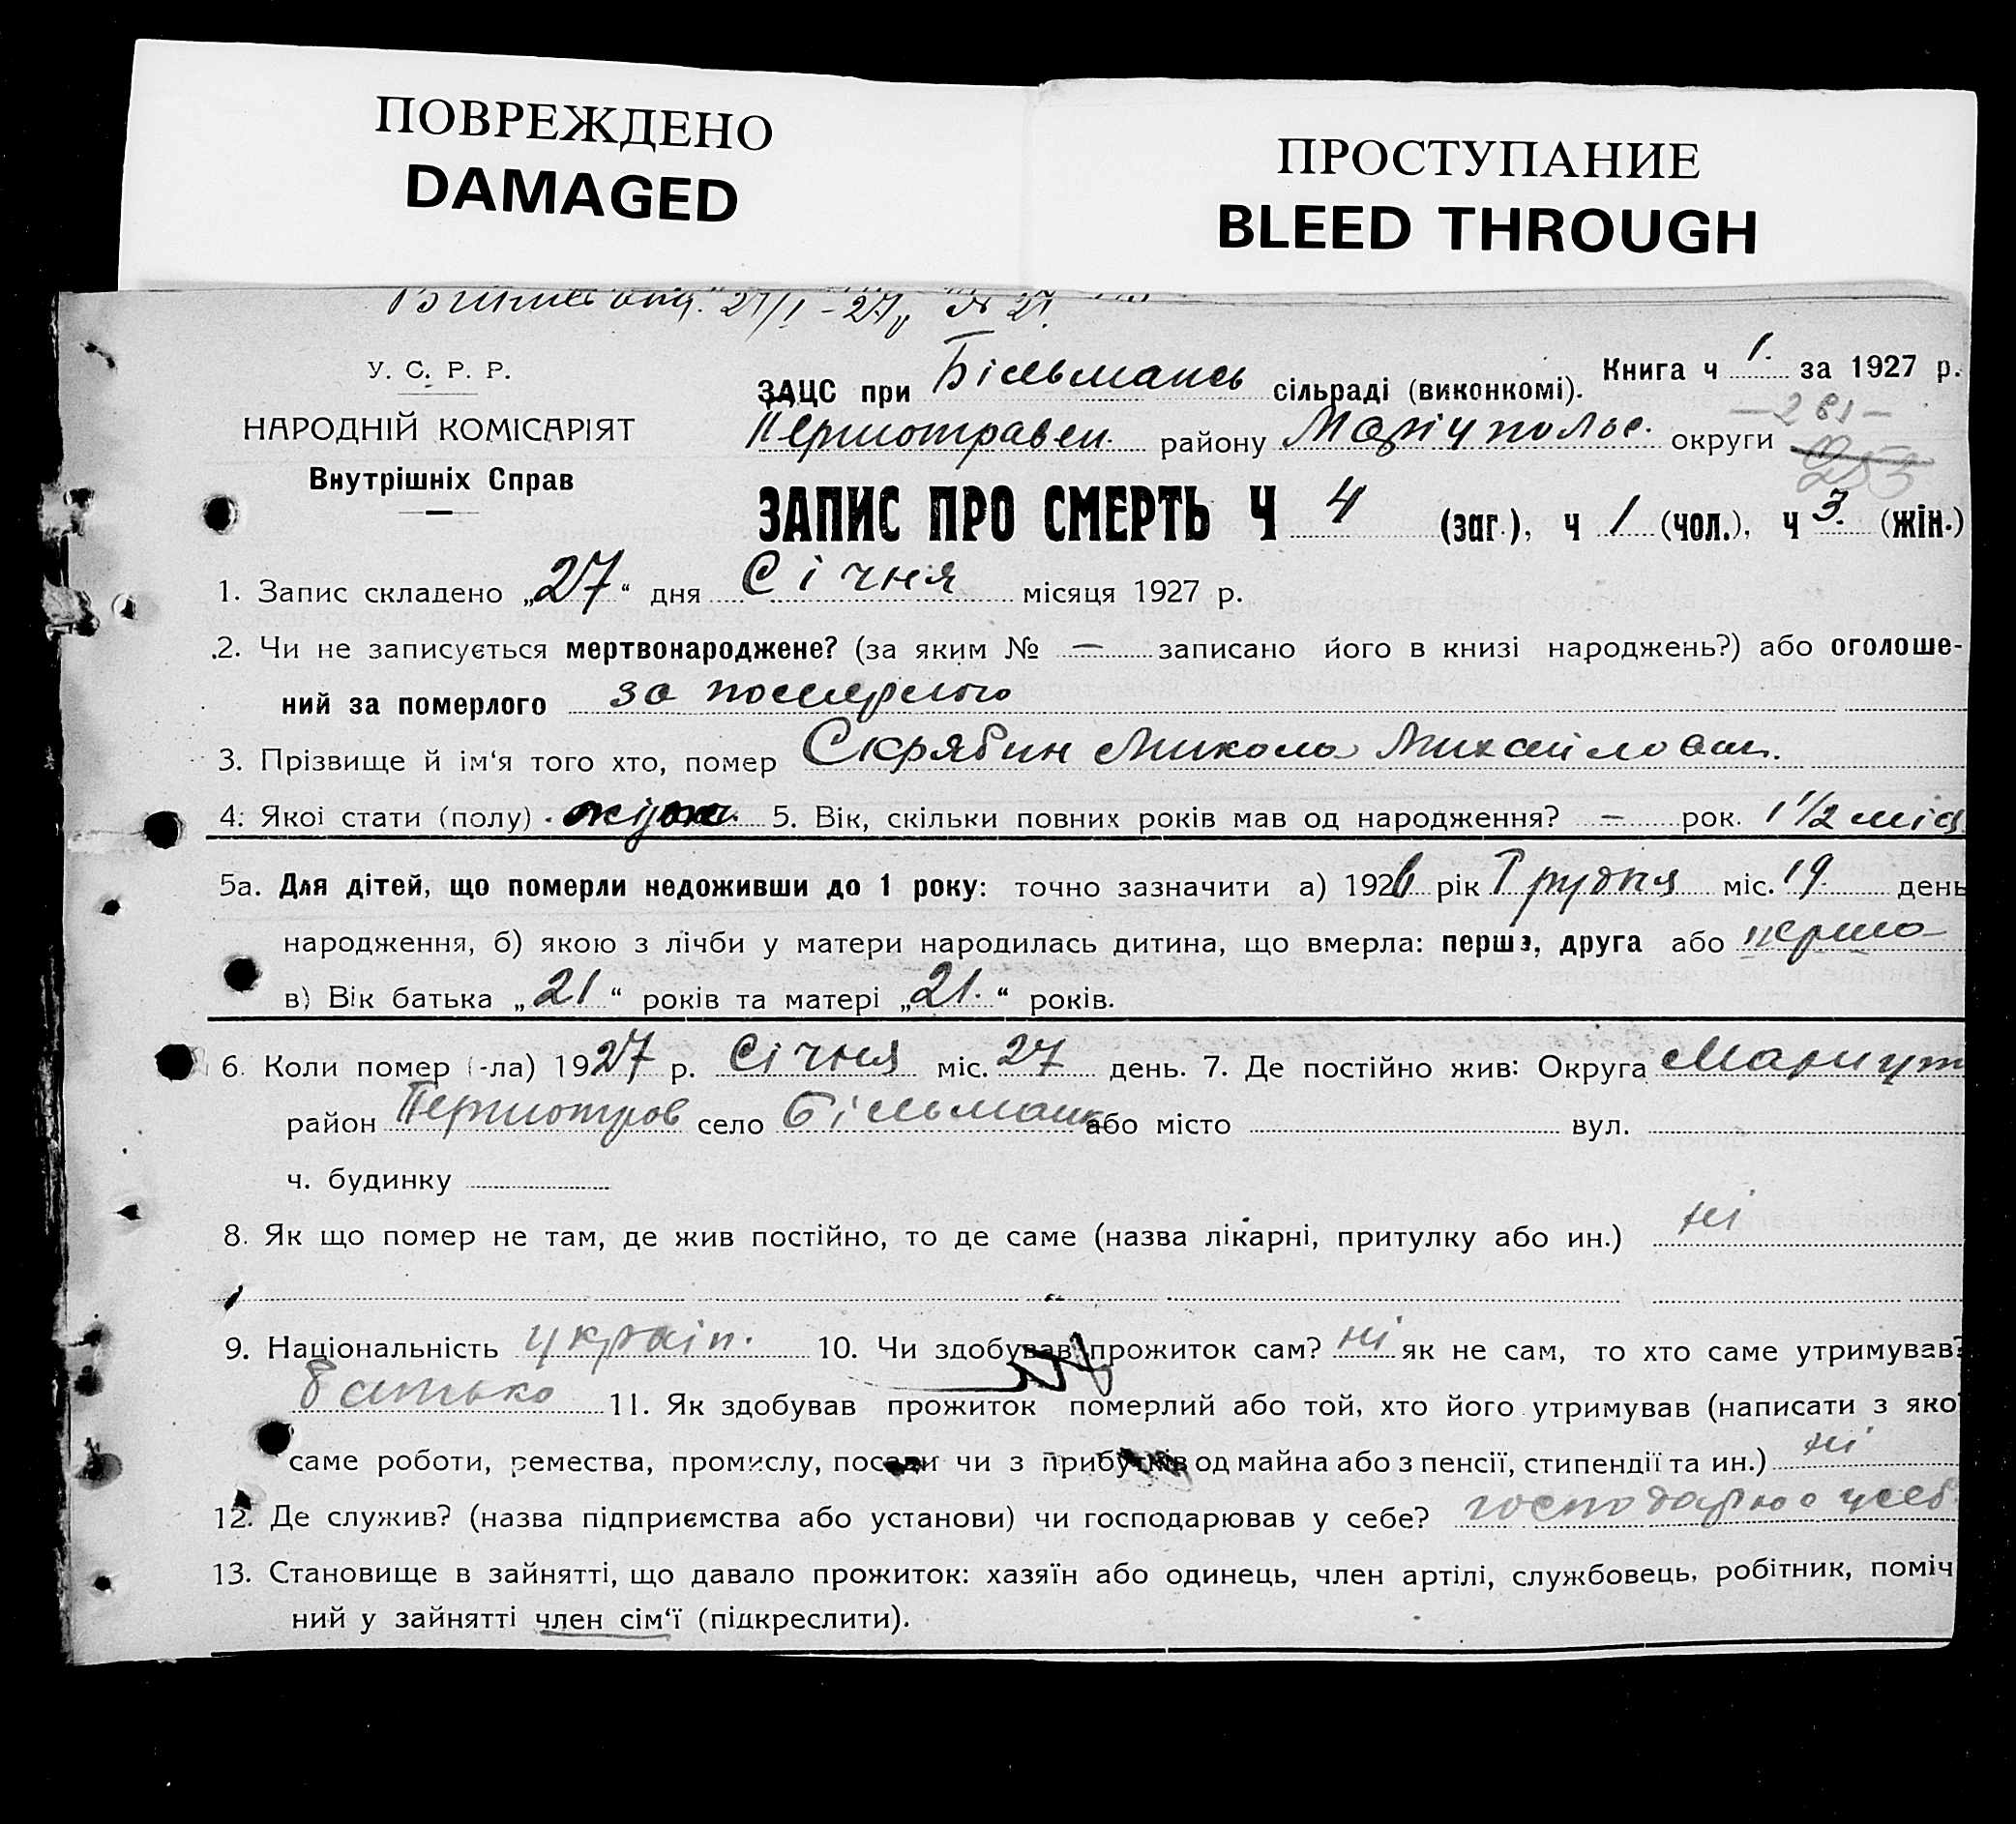 ПОВРЕЖДЕНО
DAMAGED
ПРОСТУПАНИЕ
BLEED THROUGH
27/I - 27 № 21.
У. С. Р. Р.
НАРОДНІЙ КОМІСАРІЯТ
Внутрішніх Справ
Книга ч 1. за 1927 р.
ЗАЦС при Більмансь сільраді (виконкомі).
— 281 —
Першотравен. району Маріупольс. округи
253
ЗАПИС ПРО СМЕРТЬ Ч 4 (заг.), ч 1 (чол.), ч 3. (жін.)
1. Запис складено „27“ дня Січня місяця 1927 р.
2. Чи не записується мертвонароджене? (за яким № — записано його в книзі народжень?) або оголоше-
ний за померлого за померлого
3. Прізвище й ім‘я того хто, помер Скрябин Микола Михайлович.
4. Якої стати (полу) 5. Вік, скільки повних років мав од народження? — рок. 1 1/2 міся
5а. Для дітей, що померли недоживши до 1 року: точно зазначити а) 1926 рік Грудня міс. 19. день
народження, б) якою з лічби у матери народилась дитина, що вмерла: перша, друга або перша
в) Вік батька „21“ років та матері „21.“ років.
6. Коли помер (-ла) 1927 р. Січня міс. 27 день. 7. Де постійно жив: Округа Мариуп
район Першотров село Більманк або місто вул.
ч. будинку
8. Як що помер не там, де жив постійно, то де саме (назва лікарні, притулку або ин.) ні
9. Національність україн. 10. Чи здобував прожиток сам? ні як не сам, то хто саме утримував?
батько 11. Як здобував прожиток померлий або той, хто його утримував (написати з яко
саме роботи, ремества, промислу, посади чи з прибутків од майна або з пенсії, стипендії та ин.) ні
12. Де служив? (назва підприємства або установи) чи господарював у себе? господарює у себ
13. Становище в зайнятті, що давало прожиток: хазяїн або одинець, член артілі, службовець, робітник, поміч
ний у зайнятті член сім‘ї (підкреслити).